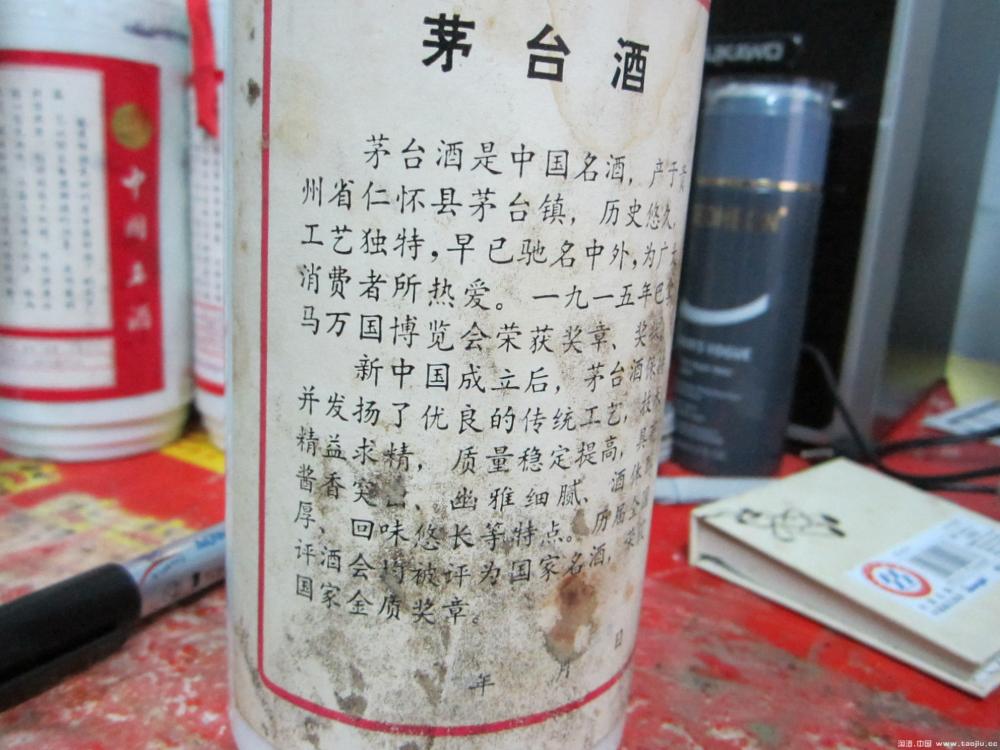 茅台酒
茅台酒是中国名酒，产于贵
州省仁怀县茅台镇，历史悠久，
工艺独特，早已驰名中外，为广大
消费者所热爱。一九一五年巴拿
马万国博览会荣获奖章、奖状。
新中国成立后，茅台酒保持
并发扬了优良的传统工艺，技术
精益求精，质量稳定提高，具有
酱香突出、幽雅细腻、酒体醇
厚、回味悠长等特点。历届全国
评酒会均被评为国家名酒，荣获
国家金质奖章。
年 月 日
中国名酒
淘酒.中国 www.taojiu.cc